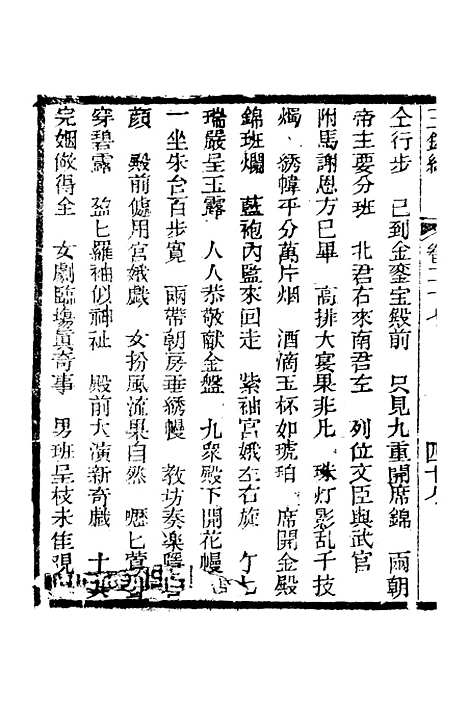 仝行步　已到金鑾宝殿前　只見九重開席錦　兩朝
帝主要分班　北君右來南君左　列位文臣與武官
附馬謝恩方已畢　高排大宴果非凡　珠灯影乱千技
燭　綉幃平分萬片烟　酒滴玉杯如琥珀　席開金殿
錦班斕　藍袍內監來回走　紫袖宮娥左右旋　个七
瑞嚴呈玉露　人人恭敬献金盤　九衆殿下開花幔
一坐朱台百步寬　兩帶朝房垂綉幔　教坊奏楽
顔　殿前儘用宮娥戲　女扮風流果自然　嚦匕鶯
穿碧露　盈匕羅袖似神祉　殿前大演新奇戲　十
完姻做得全　女劇臨塲眞奇事　男班呈枝未隹覌
卷二十七
四十九